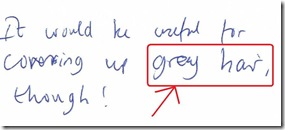 It would be useful for
covering up grey hair,
though!